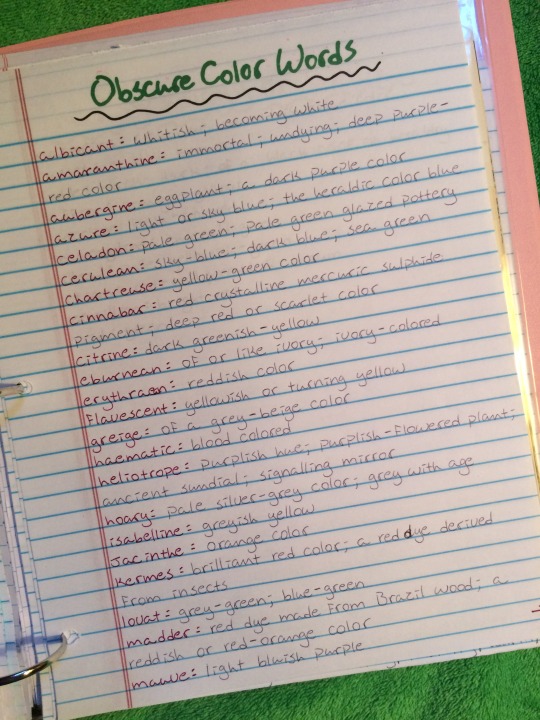 Obscure Color Words
albicant: whitish; becoming white
amaranthine: immortal; undying; deep purple-
red color
aubergine: eggplant; a dark purple color
azure: light or sky blue; the heraldic color blue
celadon: pale green; pale green glazed pottery
cerulean: sky-blue; dark blue; sea green
chartreuse: yellow-green color
cinnabar: red crystalline mercuric sulphide
pigment; deep red or scarlet color
citrine: dark greenish-yellow
eburnean: of or like ivory; ivory-colored
erythraen: reddish color
flavescent: yellowish or turning yellow
greige: of a grey-beige color
haematic: blood colored
heliotrope: purplish hue; purplish-flowered plant;
ancient sundial; signalling mirror
hoary: pale silver-grey color; grey with age
isabelline: greyish yellow
jacinthe: orange color
kermes: brilliant red color; a red dye derived
from insects
lovat: grey-green; blue-green
madder: red dye made from Brazil wood; a
reddish or red-orange color
mauve: light bluish purple